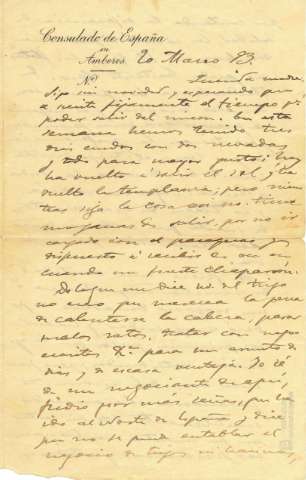 Consulado de España
en
Amberes 20 Marzo 83.
Nº Querida madre
Sigo sin novedad y esperando que
se siente fijamente el tiempo pª
poder salir del rincon. En esta
semana hemos tenido tres
dias crudos con dos nevadas
y todo para mayor gusto; hoy
ha vuelto á salir el sol y ha
vuelto la templanza; pero mien-
tras siga la cosa asi no tengo
muchas ganas de salir, por no ir
cargado con el paraguas y
dispuesto á recibir de vez en
cuando un fuerte chaparron.
De lo que me dice V. del trigo
no creo que merezca la pena
de calentarse la cabeza, pasar
malos ratos, tratar con
para un asunto de
dias, y de escasa ventaja. Yo sé
de un negociante de aqui,
que ha
ido al Norte de España y dice
que no se puede entablar el
negocio de trigos en harinas,